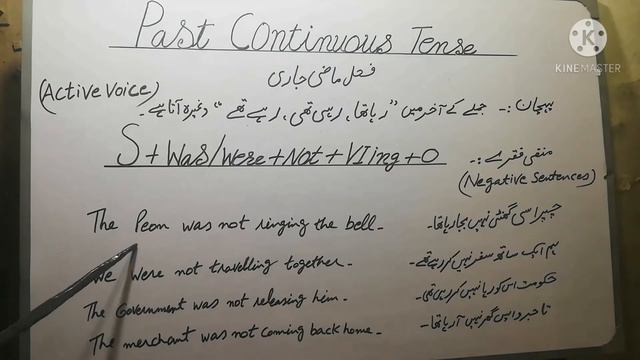 Past Continuous Tense
KINEMASTER
فعل ماضی جاری
(Active Voice)
پہچان :- جملے کے آخر میں "رہا تھا، رہی تھی، رہے تھے" وغیرہ آتا ہے۔
S + Was/Were + Not + VIing + O
منفی فقرے :-
(Negative Sentences)
The Peon was not ringing the bell.
چپڑاسی گھنٹی نہیں بجا رہا تھا۔
We were not travelling together.
ہم ایک ساتھ سفر نہیں کر رہے تھے۔
The Government was not releasing him.
حکومت اس کو رہا نہیں کر رہی تھی۔
The merchant was not coming back home.
تاجر واپس گھر نہیں آ رہا تھا۔